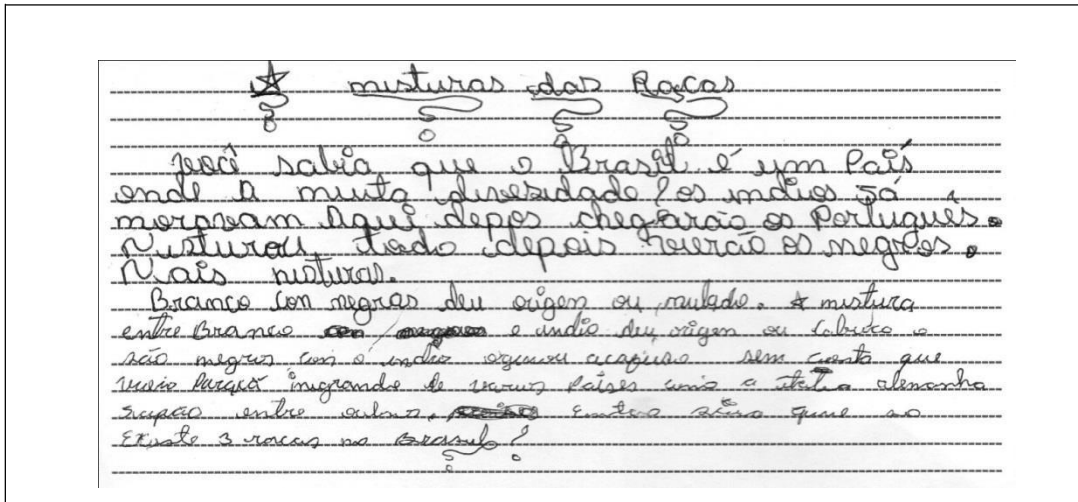 misturas das Raças
você sabia que o Brasil é um País
onde a muita diversidade? os indios Já
moravam Aqui depos chegarão os Português.
Misturou tudo depois vierão os negros.
Mais misturas.
Branco con negras deu origen ou mulado. A mistura
entre Branco e indio deu origen ou Caboco o
são negros con o indio sem conta que
de varios Paises a italia alemanha
entre outros.
Existe 3 racas no Brasul?